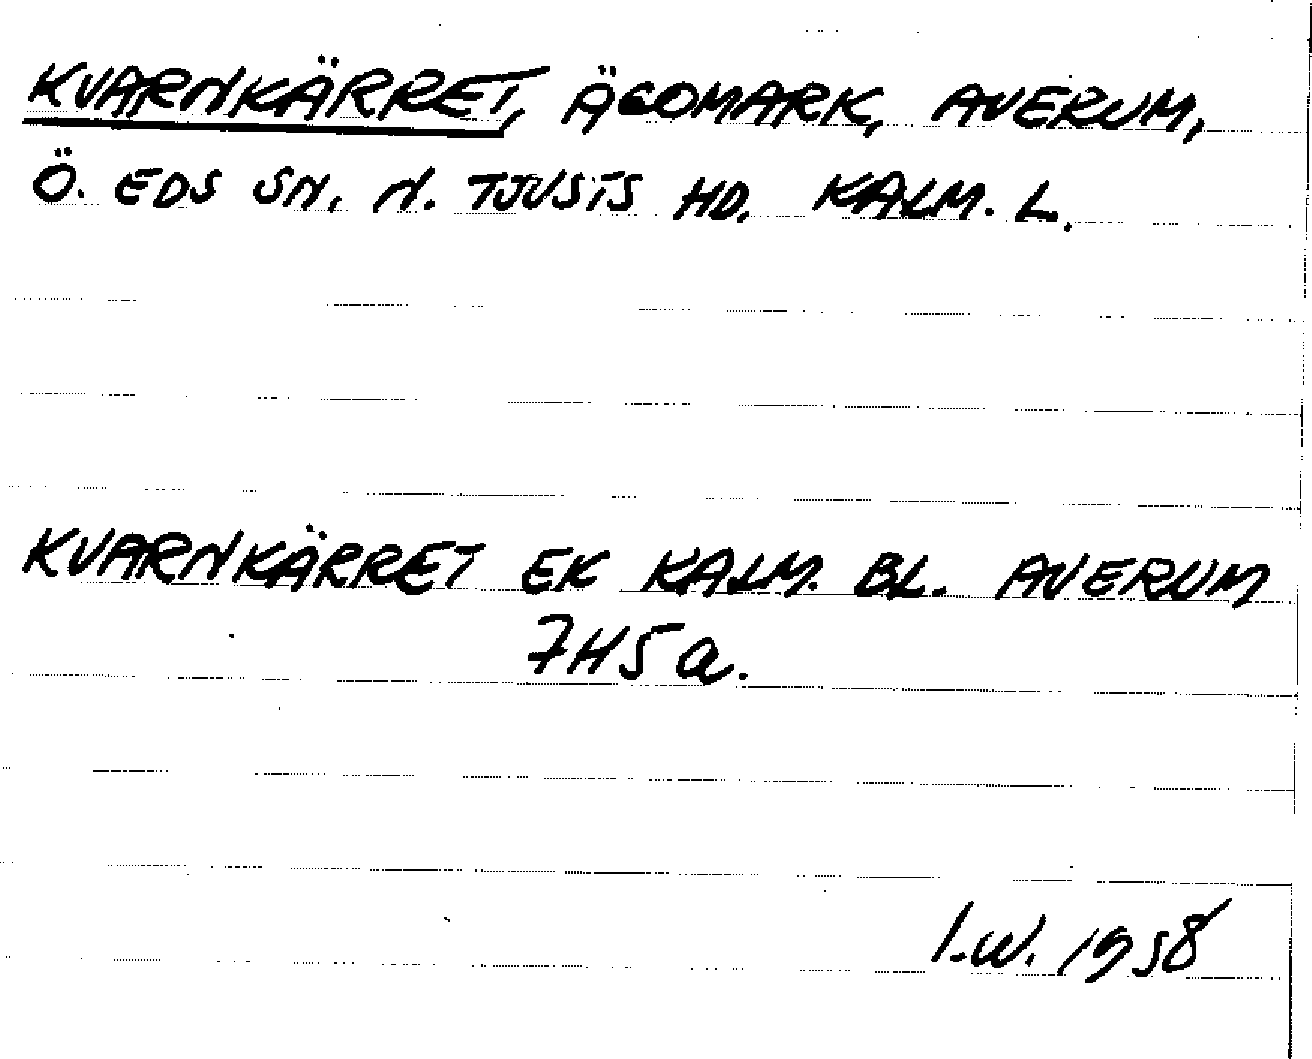 KVARNKÄRRET, ÄGOMARK, AVERUM,
Ö. EDS SN. N. TJUSTS HD. KALM. L.
KVARNKÄRRET EK KALM. BL. AVERUM
7H5a.
I.W. 1958